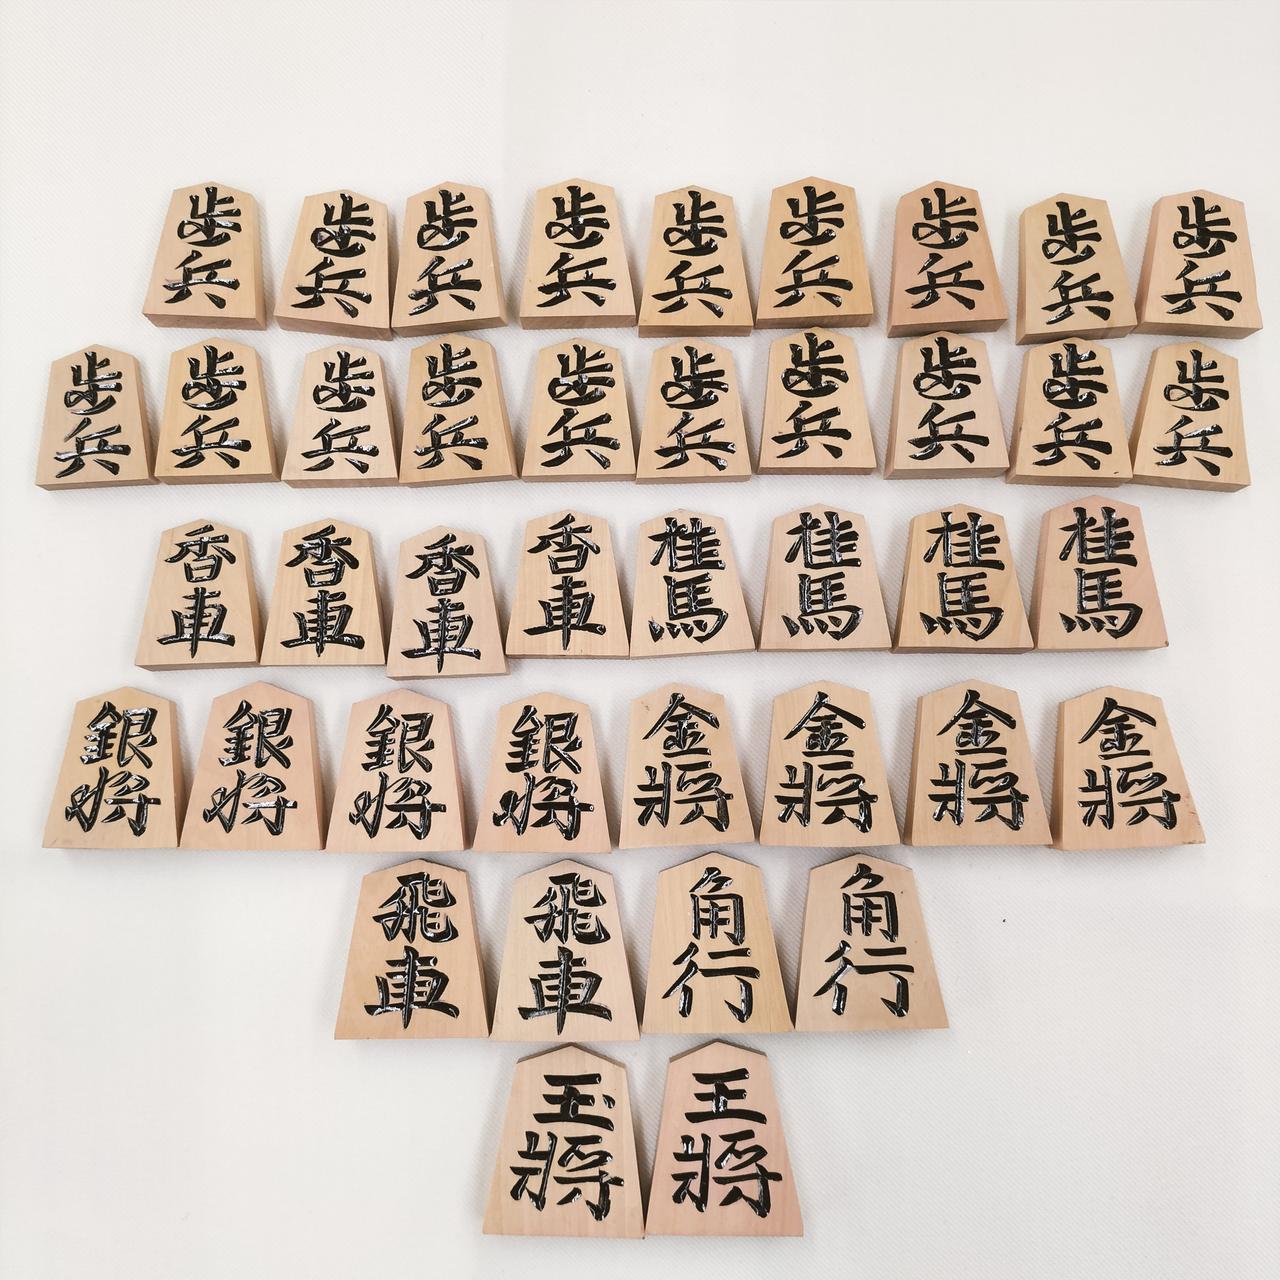 歩兵 歩兵 歩兵 歩兵 歩兵 歩兵 歩兵 歩兵 歩兵
歩兵 歩兵 歩兵 歩兵 歩兵 歩兵 歩兵 歩兵 歩兵 歩兵
香車 香車 香車 香車 桂馬 桂馬 桂馬 桂馬
銀将 銀将 銀将 銀将 金將 金將 金將 金將
飛車 飛車 角行 角行
玉將 王將